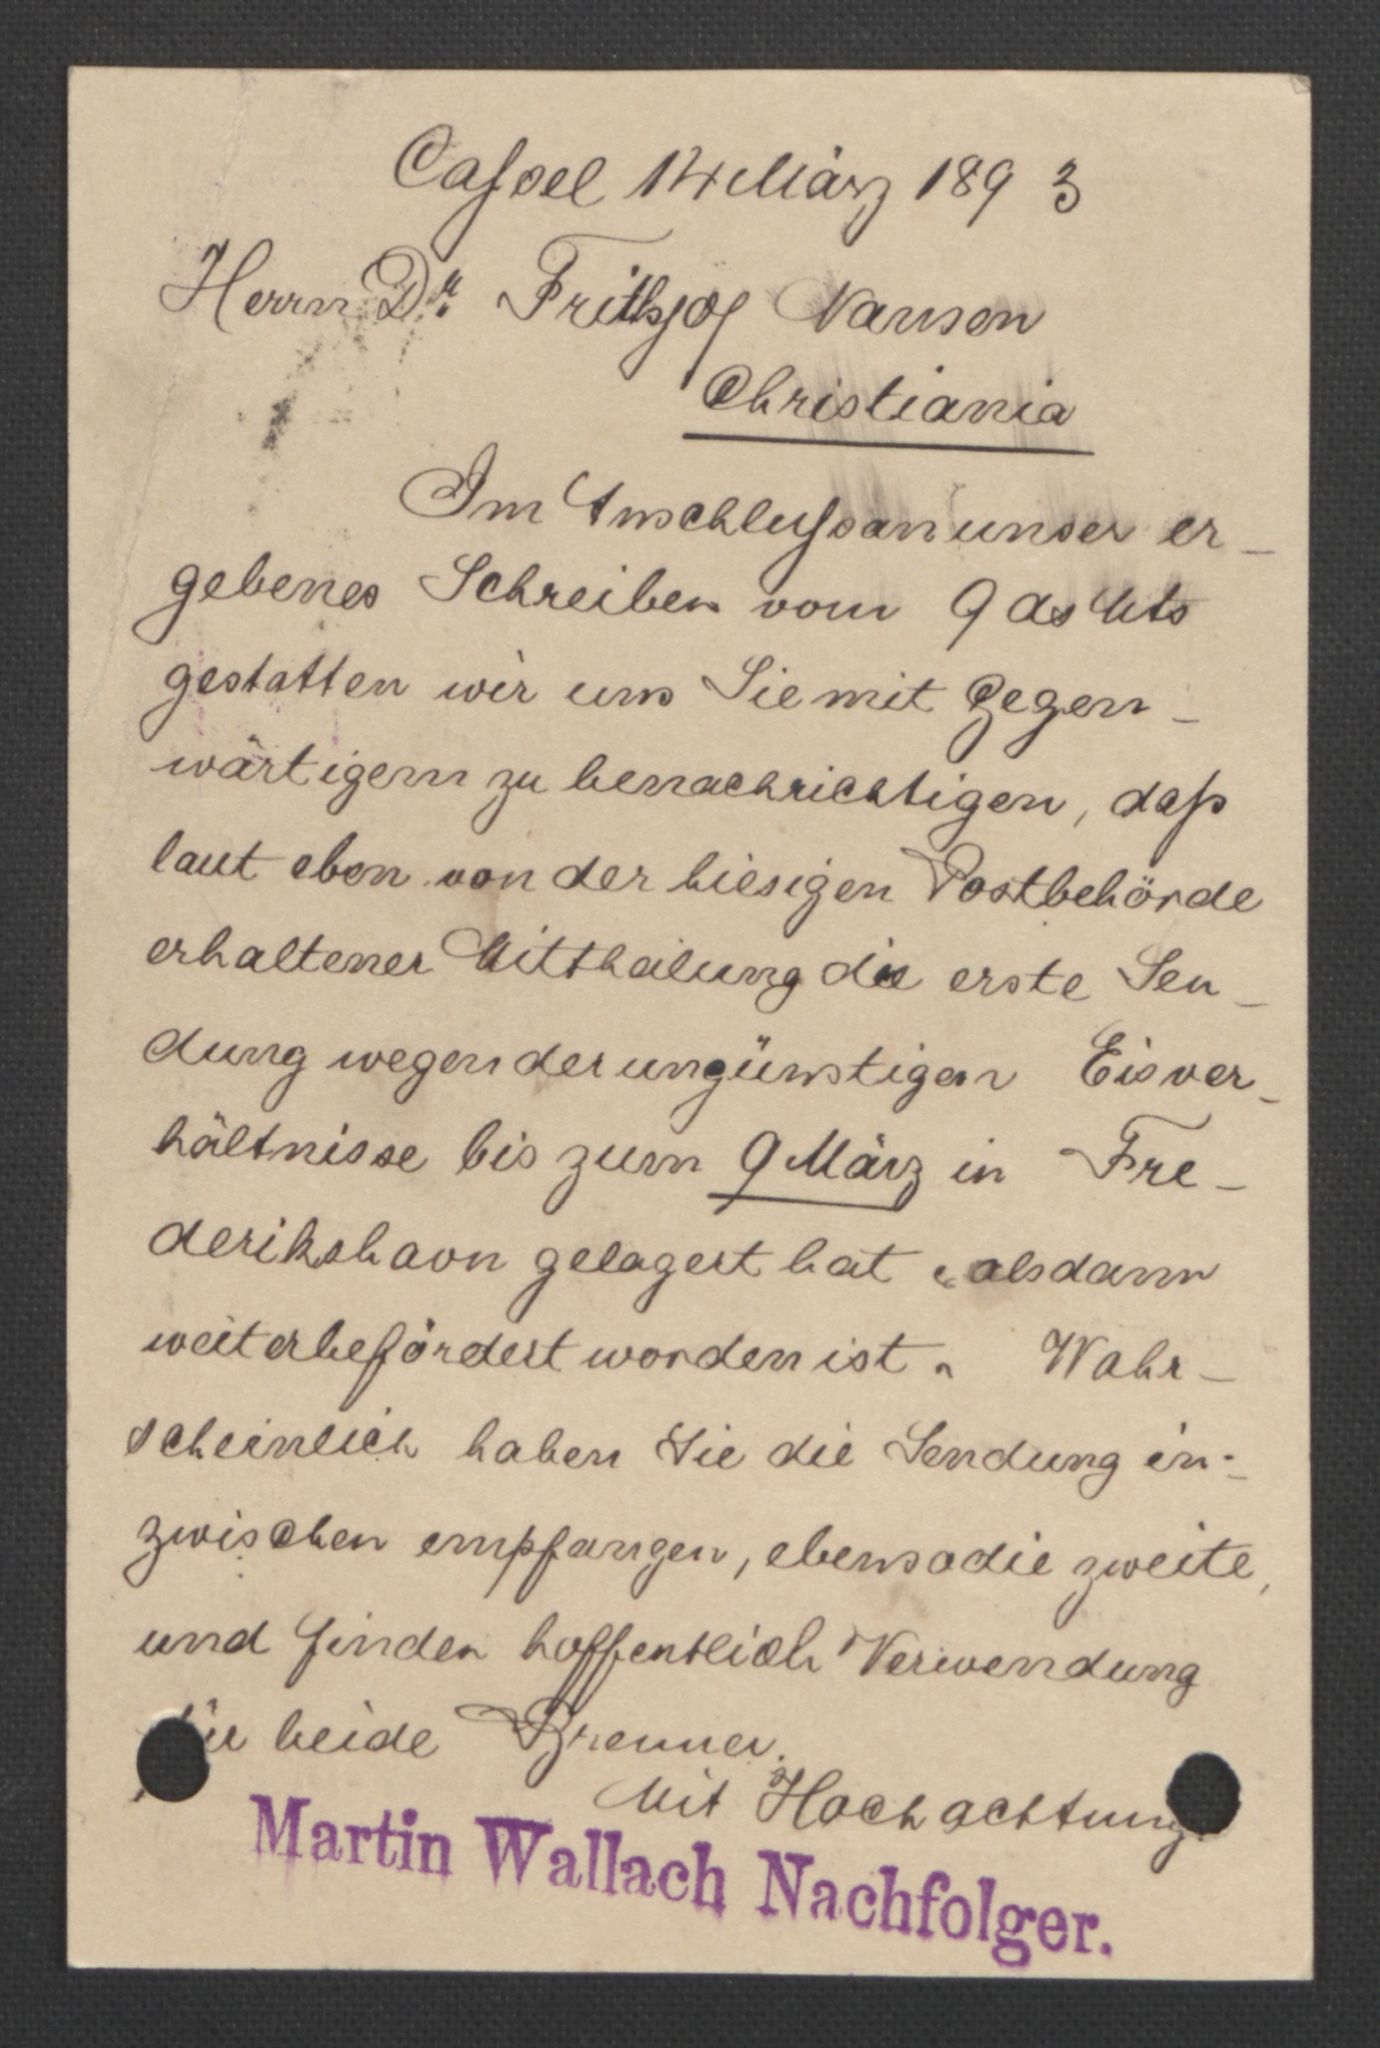 Cassel 14 März 1893
Herrn Dr. Frithjof Nansen
Christiania
Im Anschluss an unser er-
gebenes Schreiben vom 9 ds Mts
gestatten wir uns Sie mit Gegen-
wärtigem zu benachrichtigen, daß
laut eben von der hiesigen Postbehörde
erhaltener Mittheilung die erste Sen-
dung wegen der ungünstigen Eisver-
hältnisse bis zum 9 März in Fre-
derikshavn gelagert hat & alsdann
weiterbefördert worden ist. Wahr-
scheinlich haben Sie die Sendung in-
zwischen empfangen, ebenso die zweite,
und finden hoffentlich Verwendung
für beide Brenner.
Mit Hochachtung.
Martin Wallach Nachfolger.